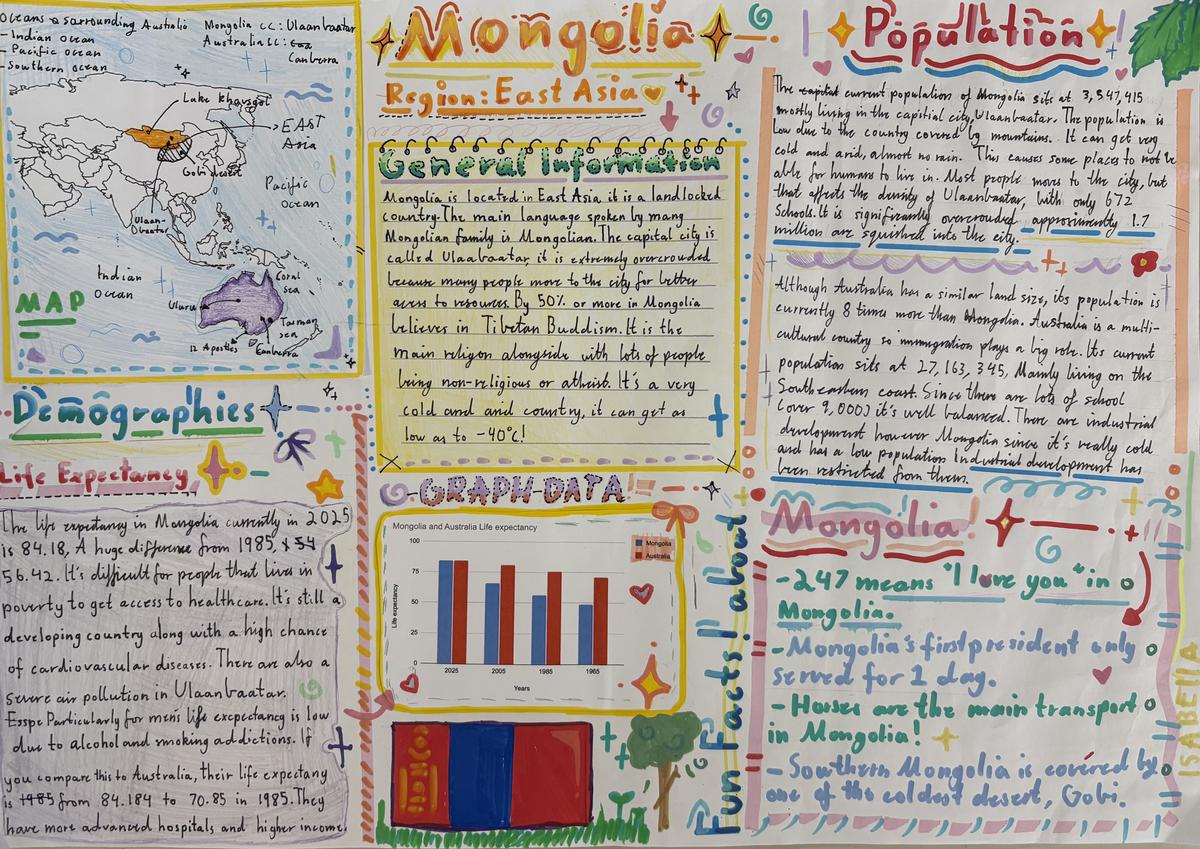 Oceans surrounding Australia
- Indian ocean
- Pacific ocean
- Southern ocean
Mongolia CC: Ulaanbaatar
Australia CC:
Canberra
Lake khovsgol
EAST
Asia
Gobi desert
Pacific
Ocean
Ulaan-
baatar
Indian
Ocean
MAP
Coral
sea
Uluru
Tasman
sea
12 Apostles
Canberra
Demographics
Life Expectancy
The life expectancy in Mongolia currently in 2025
is 84.18, A huge difference from 1985, 54
56.42. It's difficult for people that lives in
poverty to get access to healthcare. It's still a
developing country along with a high chance
of cardiovascular diseases. There are also a
severe air pollution in Ulaanbaatar.
Esspe Particularly for men's life excpectancy is low
due to alcohol and smoking addictions. If
you compare this to Australia, their life expectany
is 1985 from 84.184 to 70.85 in 1985. They
have more advanced hospitals and higher income.
Mongolia
Region: East Asia
General Information
Mongolia is located in East Asia it is a landlocked
country. The main language spoken by many
Mongolian family is Mongolian. The capital city is
called Ulaabaatar, it is extremely overcrowded
because many people move to the city for better
access to resources. By 50% or more in Mongolia
believes in Tibetan Buddhism. It is the
main religion alongside with lots of people
being non-religious or atheist. It's a very
cold and arid country, it can get as
low as to -40°C!
GRAPH DATA!
Mongolia and Australia Life expectancy
Mongolia
Australia
Life expectancy
100
75
50
25
0
2025
2005
1985
1965
Years
Fun Facts! about
Population
The capital current population of Mongolia sits at 3,547,415
mostly living in the capitial city, Ulaanbaatar. The population is
low due to the country covered by mountains. It can get very
cold and arid, almost no rain. This causes some places to not be
able for humans to live in. Most people moves to the city, but
that affects the density of Ulaanbaatar, with only 672
Schools. It is significantly overcrowded, approximently 1.7
million are squished into the city.
Although Australia has a similar land size, its population is
currently 8 times more than Mongolia. Australia is a multi-
cultural country so immigration plays a big role. Its current
population sits at 27,163,345, Mainly living on the
South-eastern coast. Since there are lots of school
(over 9,000) it's well balanced. There are industrial
development however Mongolia since it's really cold
and has a low population Industrial development has
been restricted from them.
Mongolia!
-247 means "I love you" in
Mongolia.
-Mongolia's first president only
served for 1 day.
- Horses are the main transport
in Mongolia!
- Southern Mongolia is covered by
one of the coldest desert, Gobi.
ISABELLA